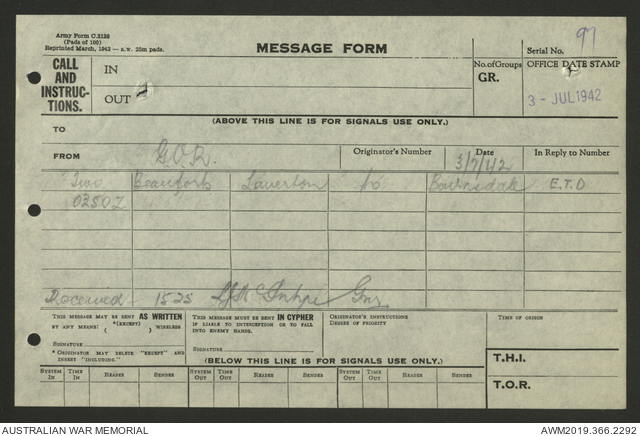 Army Form C.2128
(Pads of 100)
Reprinted March, 1942 — s.w. 25m pads.
MESSAGE FORM
Serial No. 97
CALL AND INSTRUC-TIONS.
IN
OUT
No. of Groups
GR.
OFFICE DATE STAMP
3 - JUL 1942
(ABOVE THIS LINE IS FOR SIGNALS USE ONLY.)
TO
FROM G.O.R.
Originator's Number
Date 3/7/42
In Reply to Number
Two Beauforts Laverton to Bairnsdale E.T.D
0250Z
Received 1525 Gnr
THIS MESSAGE MAY BE SENT AS WRITTEN
BY ANY MEANS: ( *(EXCEPT) ) WIRELESS
SIGNATURE
* ORIGINATOR MAY DELETE "EXCEPT" AND INSERT "INCLUDING."
THIS MESSAGE MUST BE SENT IN CYPHER
IF LIABLE TO INTERCEPTION OR TO FALL
INTO ENEMY HANDS.
SIGNATURE
ORIGINATOR'S INSTRUCTIONS
DEGREE OF PRIORITY
TIME OF ORIGIN
T.H.I.
T.O.R.
(BELOW THIS LINE IS FOR SIGNALS USE ONLY.)
SYSTEM IN TIME IN READER SENDER SYSTEM OUT TIME OUT READER SENDER SYSTEM OUT TIME OUT READER SENDER
AUSTRALIAN WAR MEMORIAL
AWM2019.366.2292